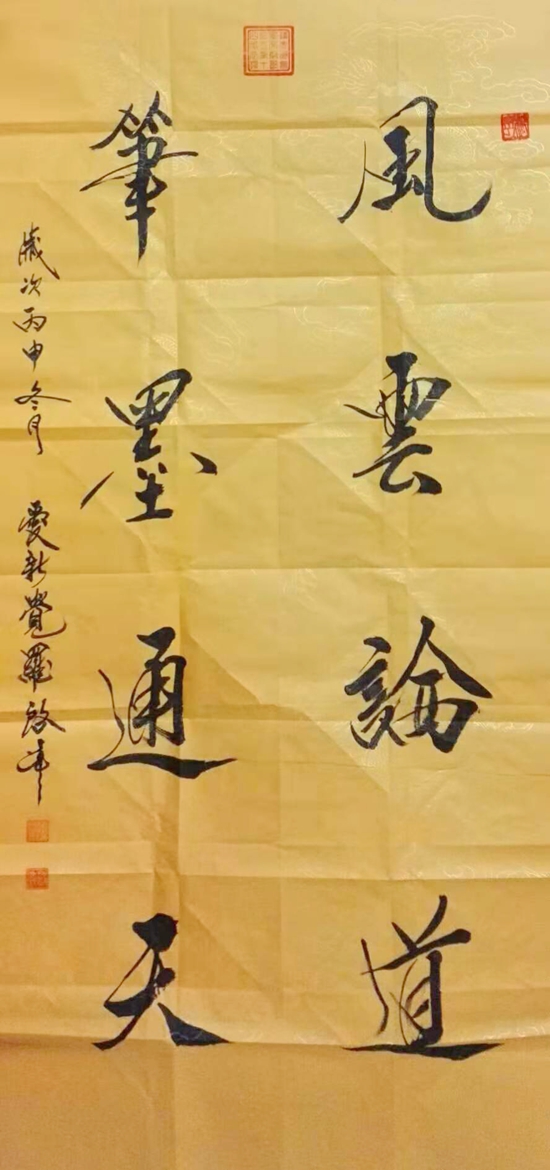 風雲論道
筆墨通天
歲次丙申冬月 愛新覺羅啟